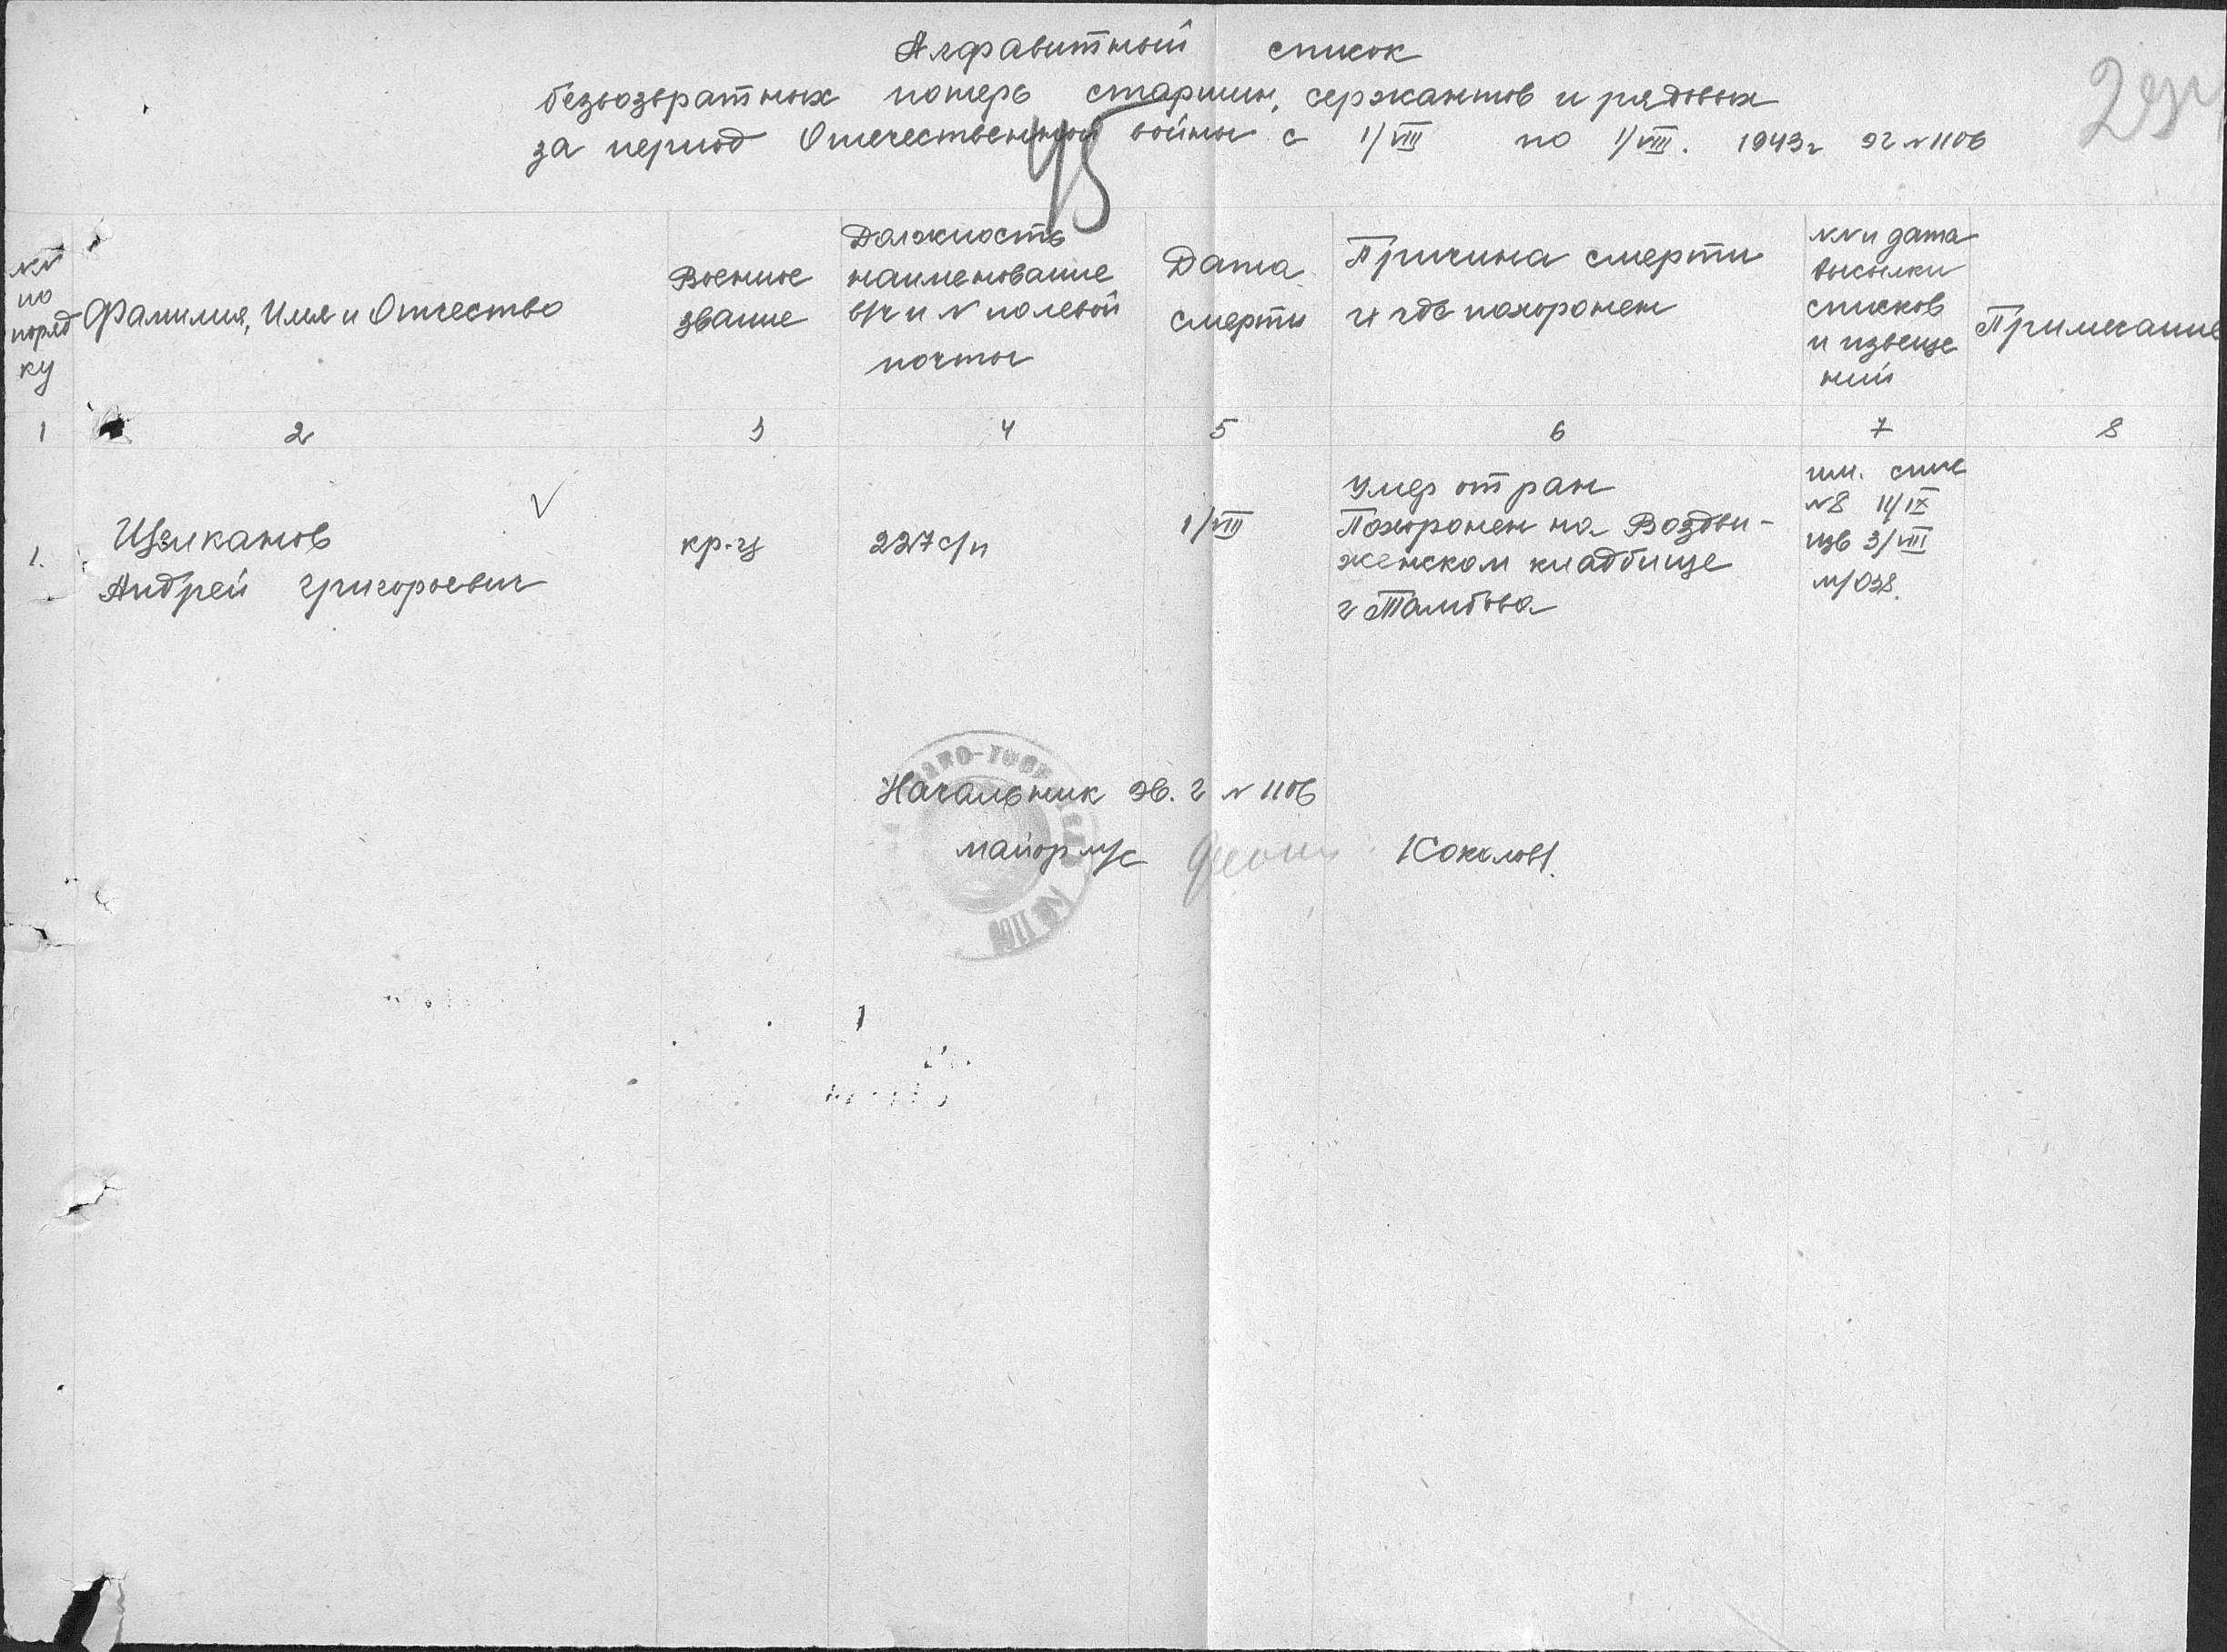 Алфавитный список
безвозвратных потерь старшин, сержантов и рядовых
за период Отечественной войны с 1/VIII по 1/VIII. 1943г эг №1106
45
№№ по поряд ку
Фамилия, Имя и Отчество
Военное звание
Должность наименование в/ч и № полевой почты
Дата смерти
Причина смерти и где похоронен
№№ и дата высылки списков и извеще ний
Примечание
1 2 3 4 5 6 7 8
1.
Андрей Григорьевич
кр-ц
227 с/п
1/VIII
Умер от ран
Похоронен на Воздви-
женском кладбище
г Тамбова
им. спис
№8 11/IX
изв 3/VIII
м/038.
Начальник эв. г № 1106
майор м/с /Соколов/.